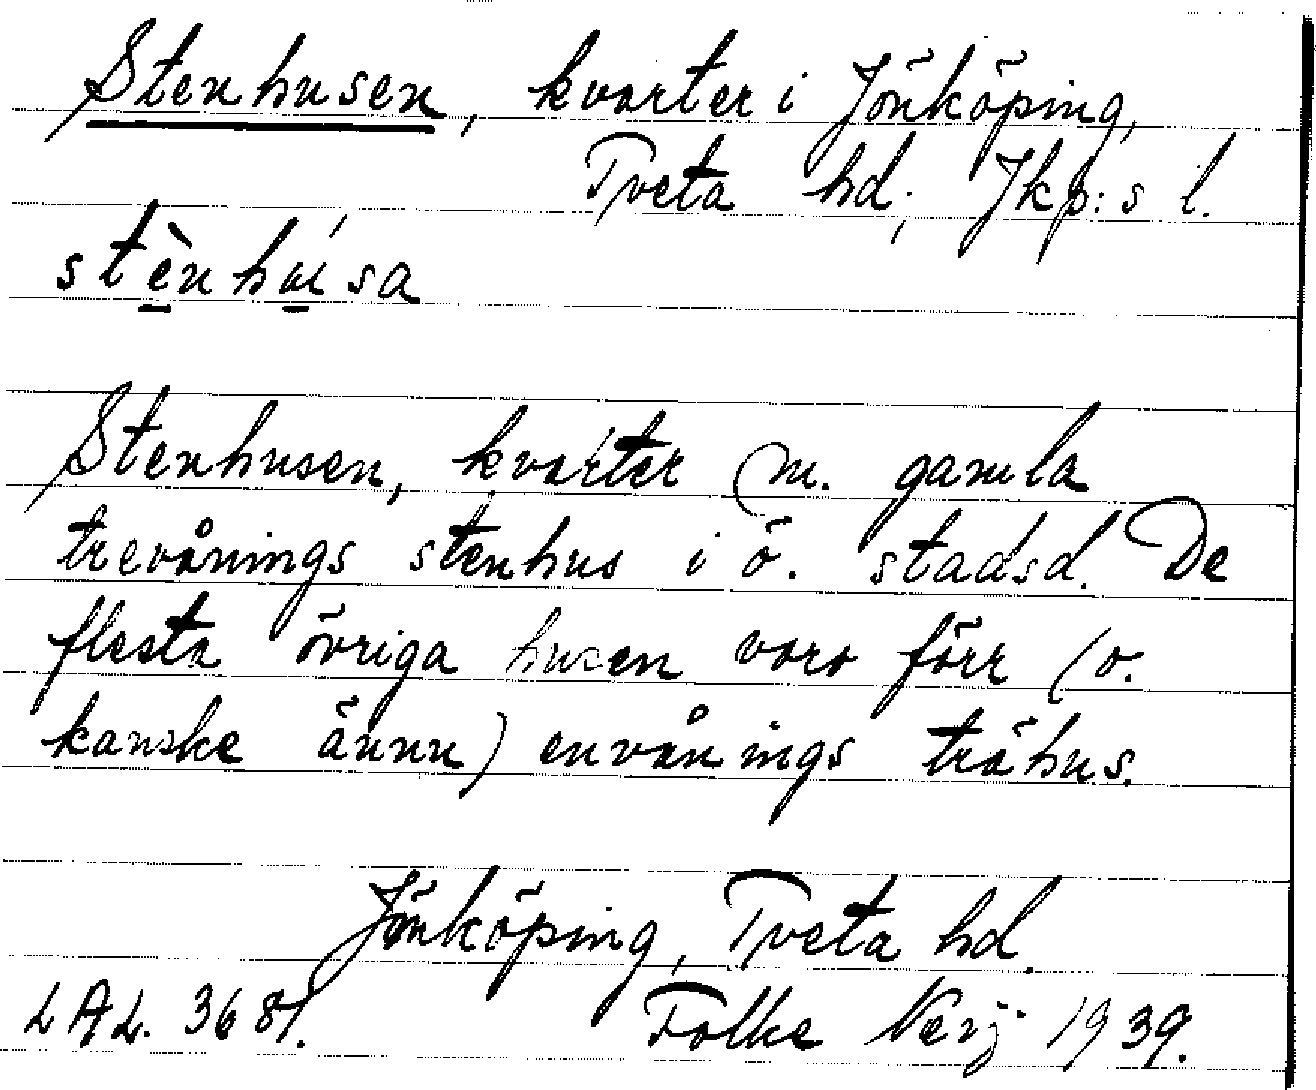 Stenhusen, kvarter i Jönköping,
Tveta hd, Jkp:s l.
stènhúsa
Stenhusen, kvarter m. gamla
trevånings stenhus i ö. stadsd. De
flesta övriga husen voro förr (o.
kanske ännu) envånings trähus.
Jönköping, Tveta hd.
LAL. 3681. Folke 1939.